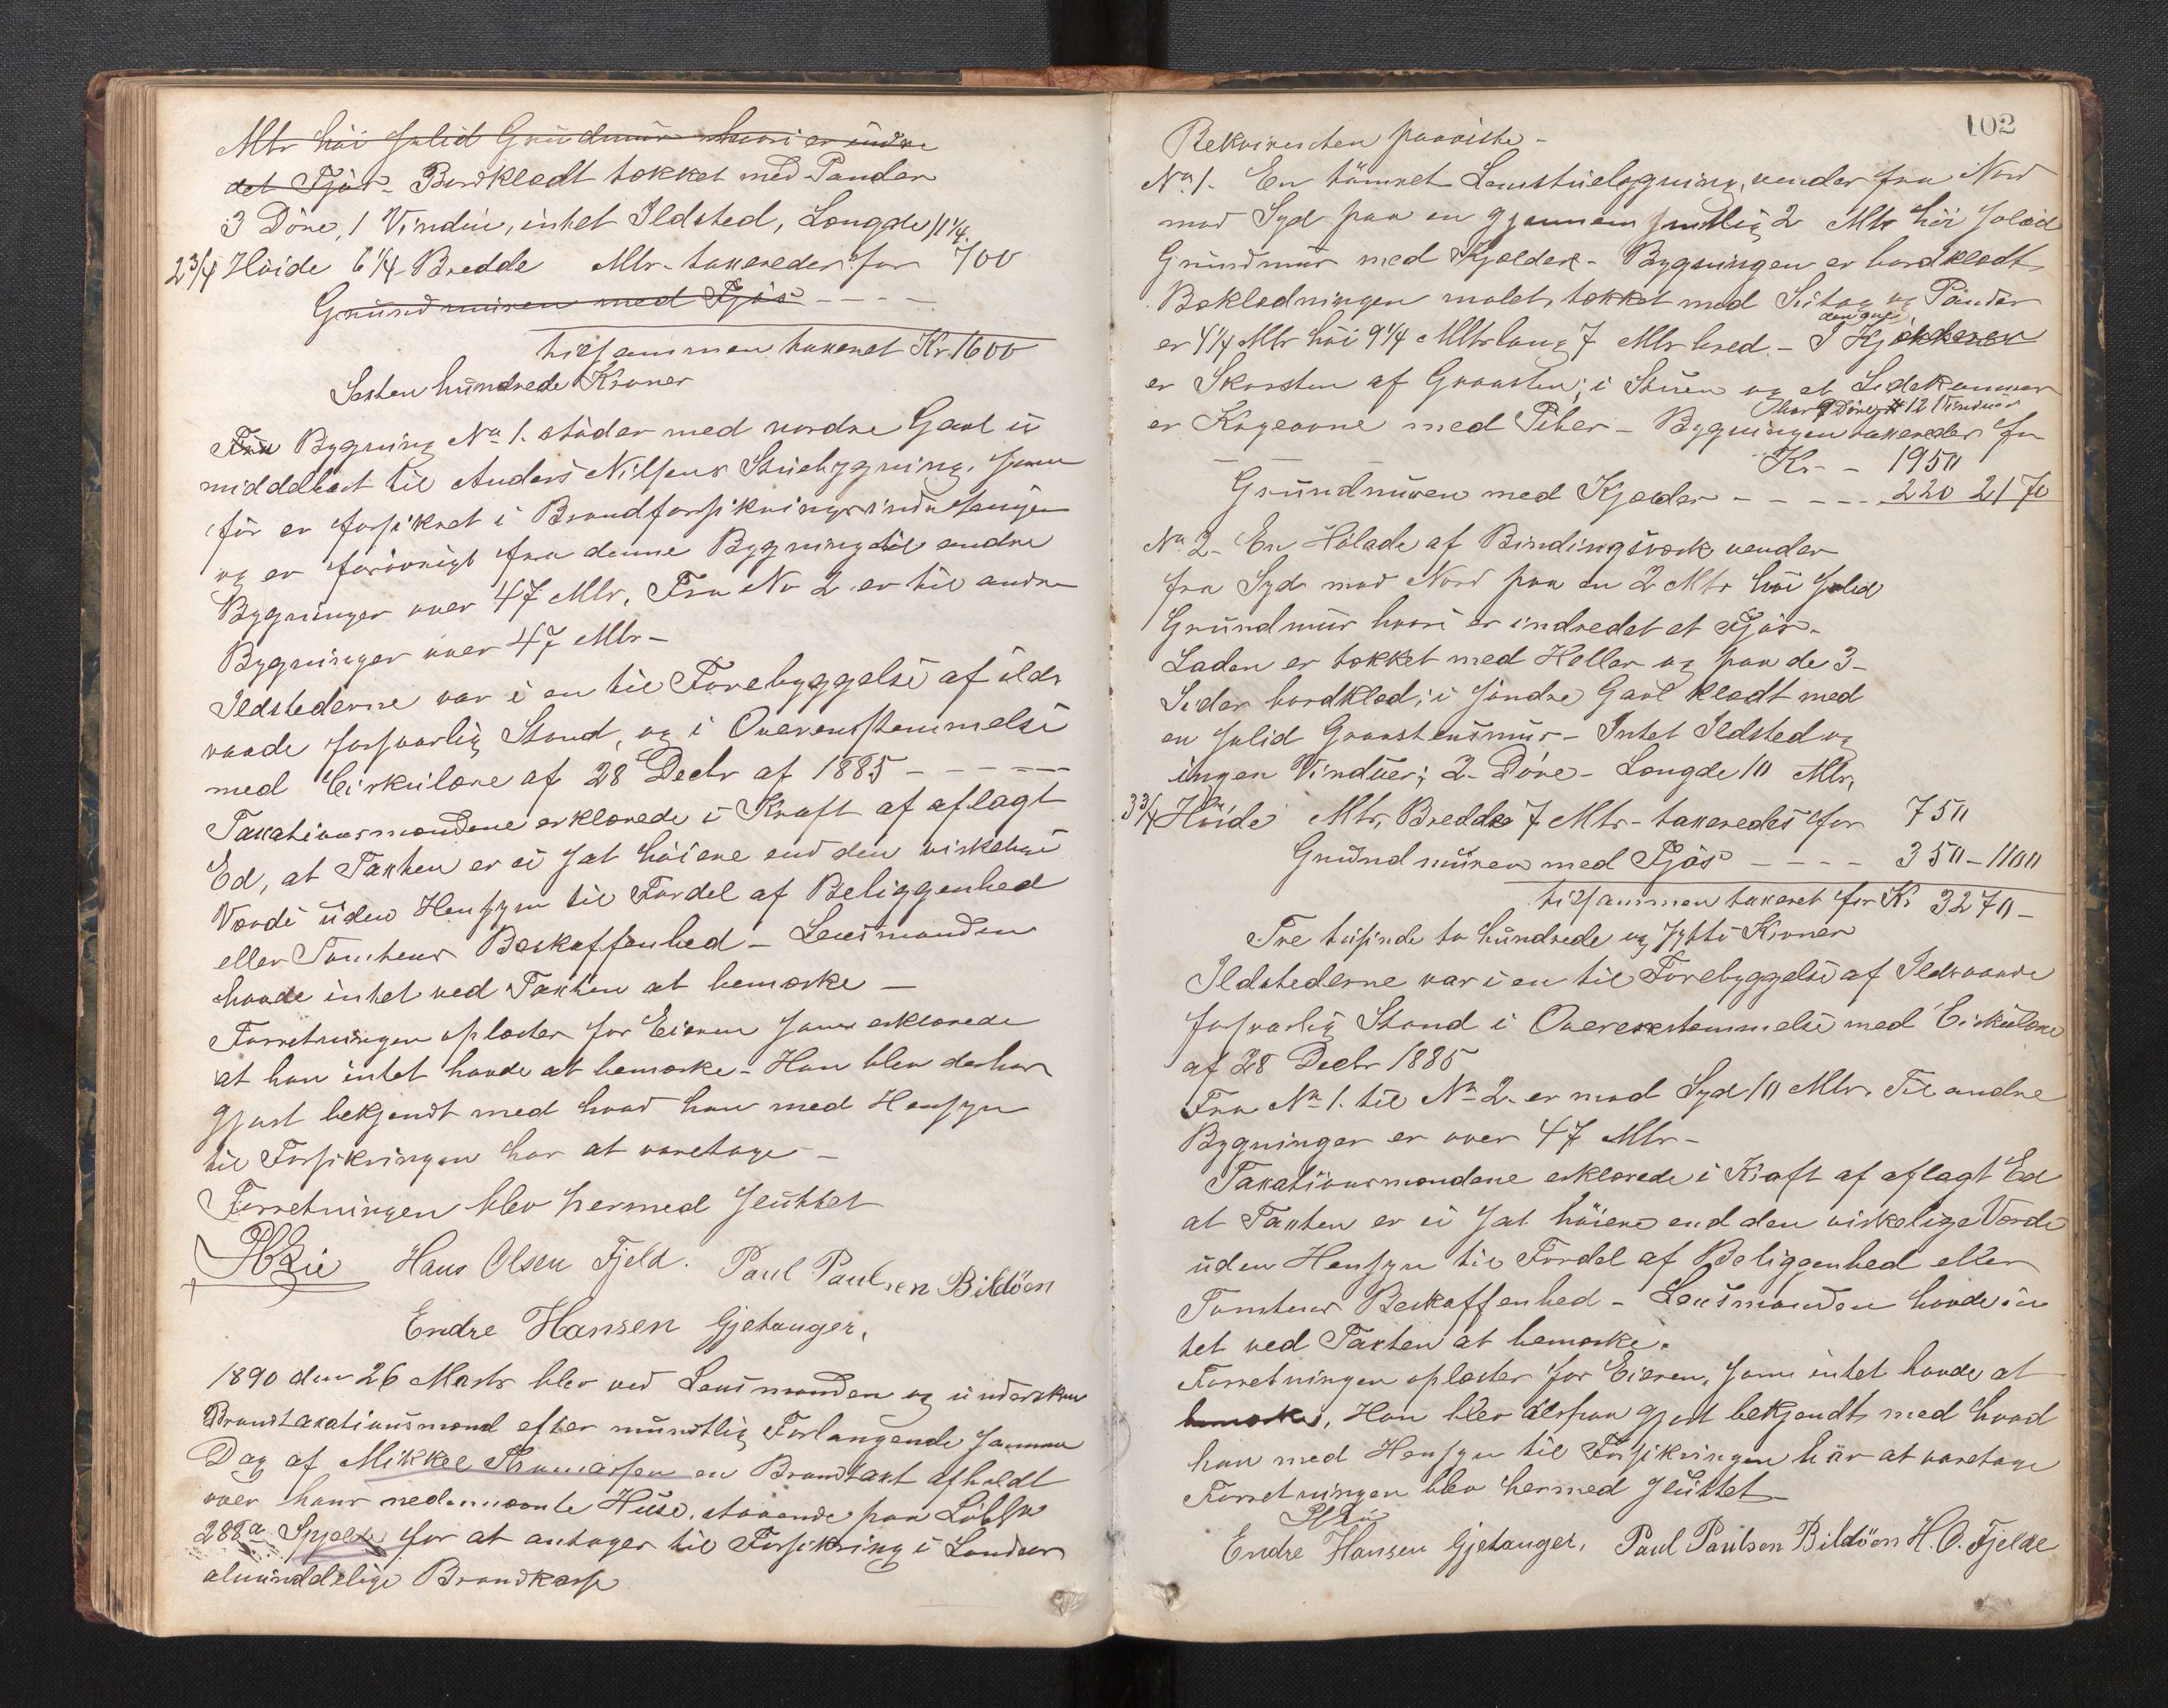 Mtr høi solid Grundmur hvori er indre
det Fjøs. Bordklædt tækket med Pander
3 Døre, 1 Vindu, intet Ildsted, Længde 11 1/4
2 3/4 Høide 6 1/4 Bredde Mtr. taxeredes for 700
Grundmuren med Fjøs - - - -
tilsammen taxeret Kr. 1600
Sexten hundrede Kroner
Fra Bygning No 1. støder med nordre Gavl u
middelbart til Anders Nilsens Stuebygning, som
før er forsikret i Brandforsikrings
og er forøvrigt fra denne Bygning til andre
Bygninger over 47 Mtr. Fra No 2 er til andre
Bygninger over 47 Mtr -
Ildstederne var i en til Forebyggelse af ilds
vaade forsvarlig Stand, og i Overensstemmelse
med Cirkulære af 28 Decbr af 1885 - - - -
Taxationsmændene erklærede i Kraft af aflagt
Ed, at Taxten er ei sat høiere end den virkelige
Værdi uden Hensyn til Fordel af Beliggenhed
eller Tomtens Beskaffenhed - Lensmanden
havde intet ved Taxten at bemærke -
Forretningen oplæstes for Eieren som erklærede
at han intet havde at bemærke - Han blev derhos
gjort bekjendt med hvad han med Hensyn
til Forsikringen har at varetage -
Forretningen blev hermed sluttet
Hans Olsen Fjeld. Paul Paulsen Bildöen
Endre Hansen Gjetanger,
1890 den 26 Marts blev ved Lensmanden og underskr
Brandtaxationsmænd efter mundtlig Forlangende samme
Dag af Mikkel Thomassen en Brandtaxt afholdt
over hans nedennævnte Huse, staaende paa Løbsn
288a Spjeld for at antages til Forsikring i Landets
almindelige Brandkasse
102
Rekvirenten paaviste -
No 1. En tømret Lemstuebygning, vender fra Nord
mod Syd paa en gjennemsnitlig 2 Mtr høi solid
Grundmur med Kjælder - Bygningen er bordklædt
Beklædningen malet, tækket med Sutag og Pander
er 4 1/4 Mtr høi 9 1/4 Mtr lang 7 Mtr bred - I Kjøkkenen
er Skorsten af Graasten; i Stuen og et Sidekammer
har 9 Døre 12 Vinduer
er Kogeovne med Piber - Bygningen taxeredes for
Kr - 1950
Grundmuren med Kjælder - - - - - 220 2170
No 2 - En Høladе af Bindingsværk vender
fra Syd mod Nord paa en 2 Mtr høi solid
Grundmur hvori er indredet et Fjøs -
Laden er tækket med Heller og paa de 3
Sider bordklæd; i søndre Gavl klædt med
en solid Graastensmur - Intet Ildsted og
ingen Vinduer; 2 Døre - Længde 10 Mtr,
3 3/4 Høide Mtr, Bredde 7 Mtr - taxeredes for 750
Grundmuren med Fjøs - - - - 350 - 1100
tilsammen taxeret for Kr 3270 -
Tre tusinde to hundrede og sytti Kroner
Ildstederne var i en til Forebyggelse af Ildsvaade
forsvarlig Stand i Overenstemmelse med Cirkulære
af 28 Decbr 1885
Fra No 1. til No 2 er mod Syd 10 Mtr. Til andre
Bygninger er over 47 Mtr -
Taxationsmændene erklærede i Kraft af aflagt Ed
at Taxten er ei sat høiere end den virkelige Værdi
uden Hensyn til Fordel af Beliggenhed eller
Tomtens Beskaffenhed - Lensmanden havde in
tet ved Taxten at bemærke.
Forretningen oplæstes for Eieren, som intet havde at
bemærke, Han blev gjort bekjendt, med hvad
han med Hensyn til Forsikringen har at varetage
Forretningen blev hermed sluttet
Endre Hansen Gjetanger, Paul Paulsen Bildöen H. O. Fjelde